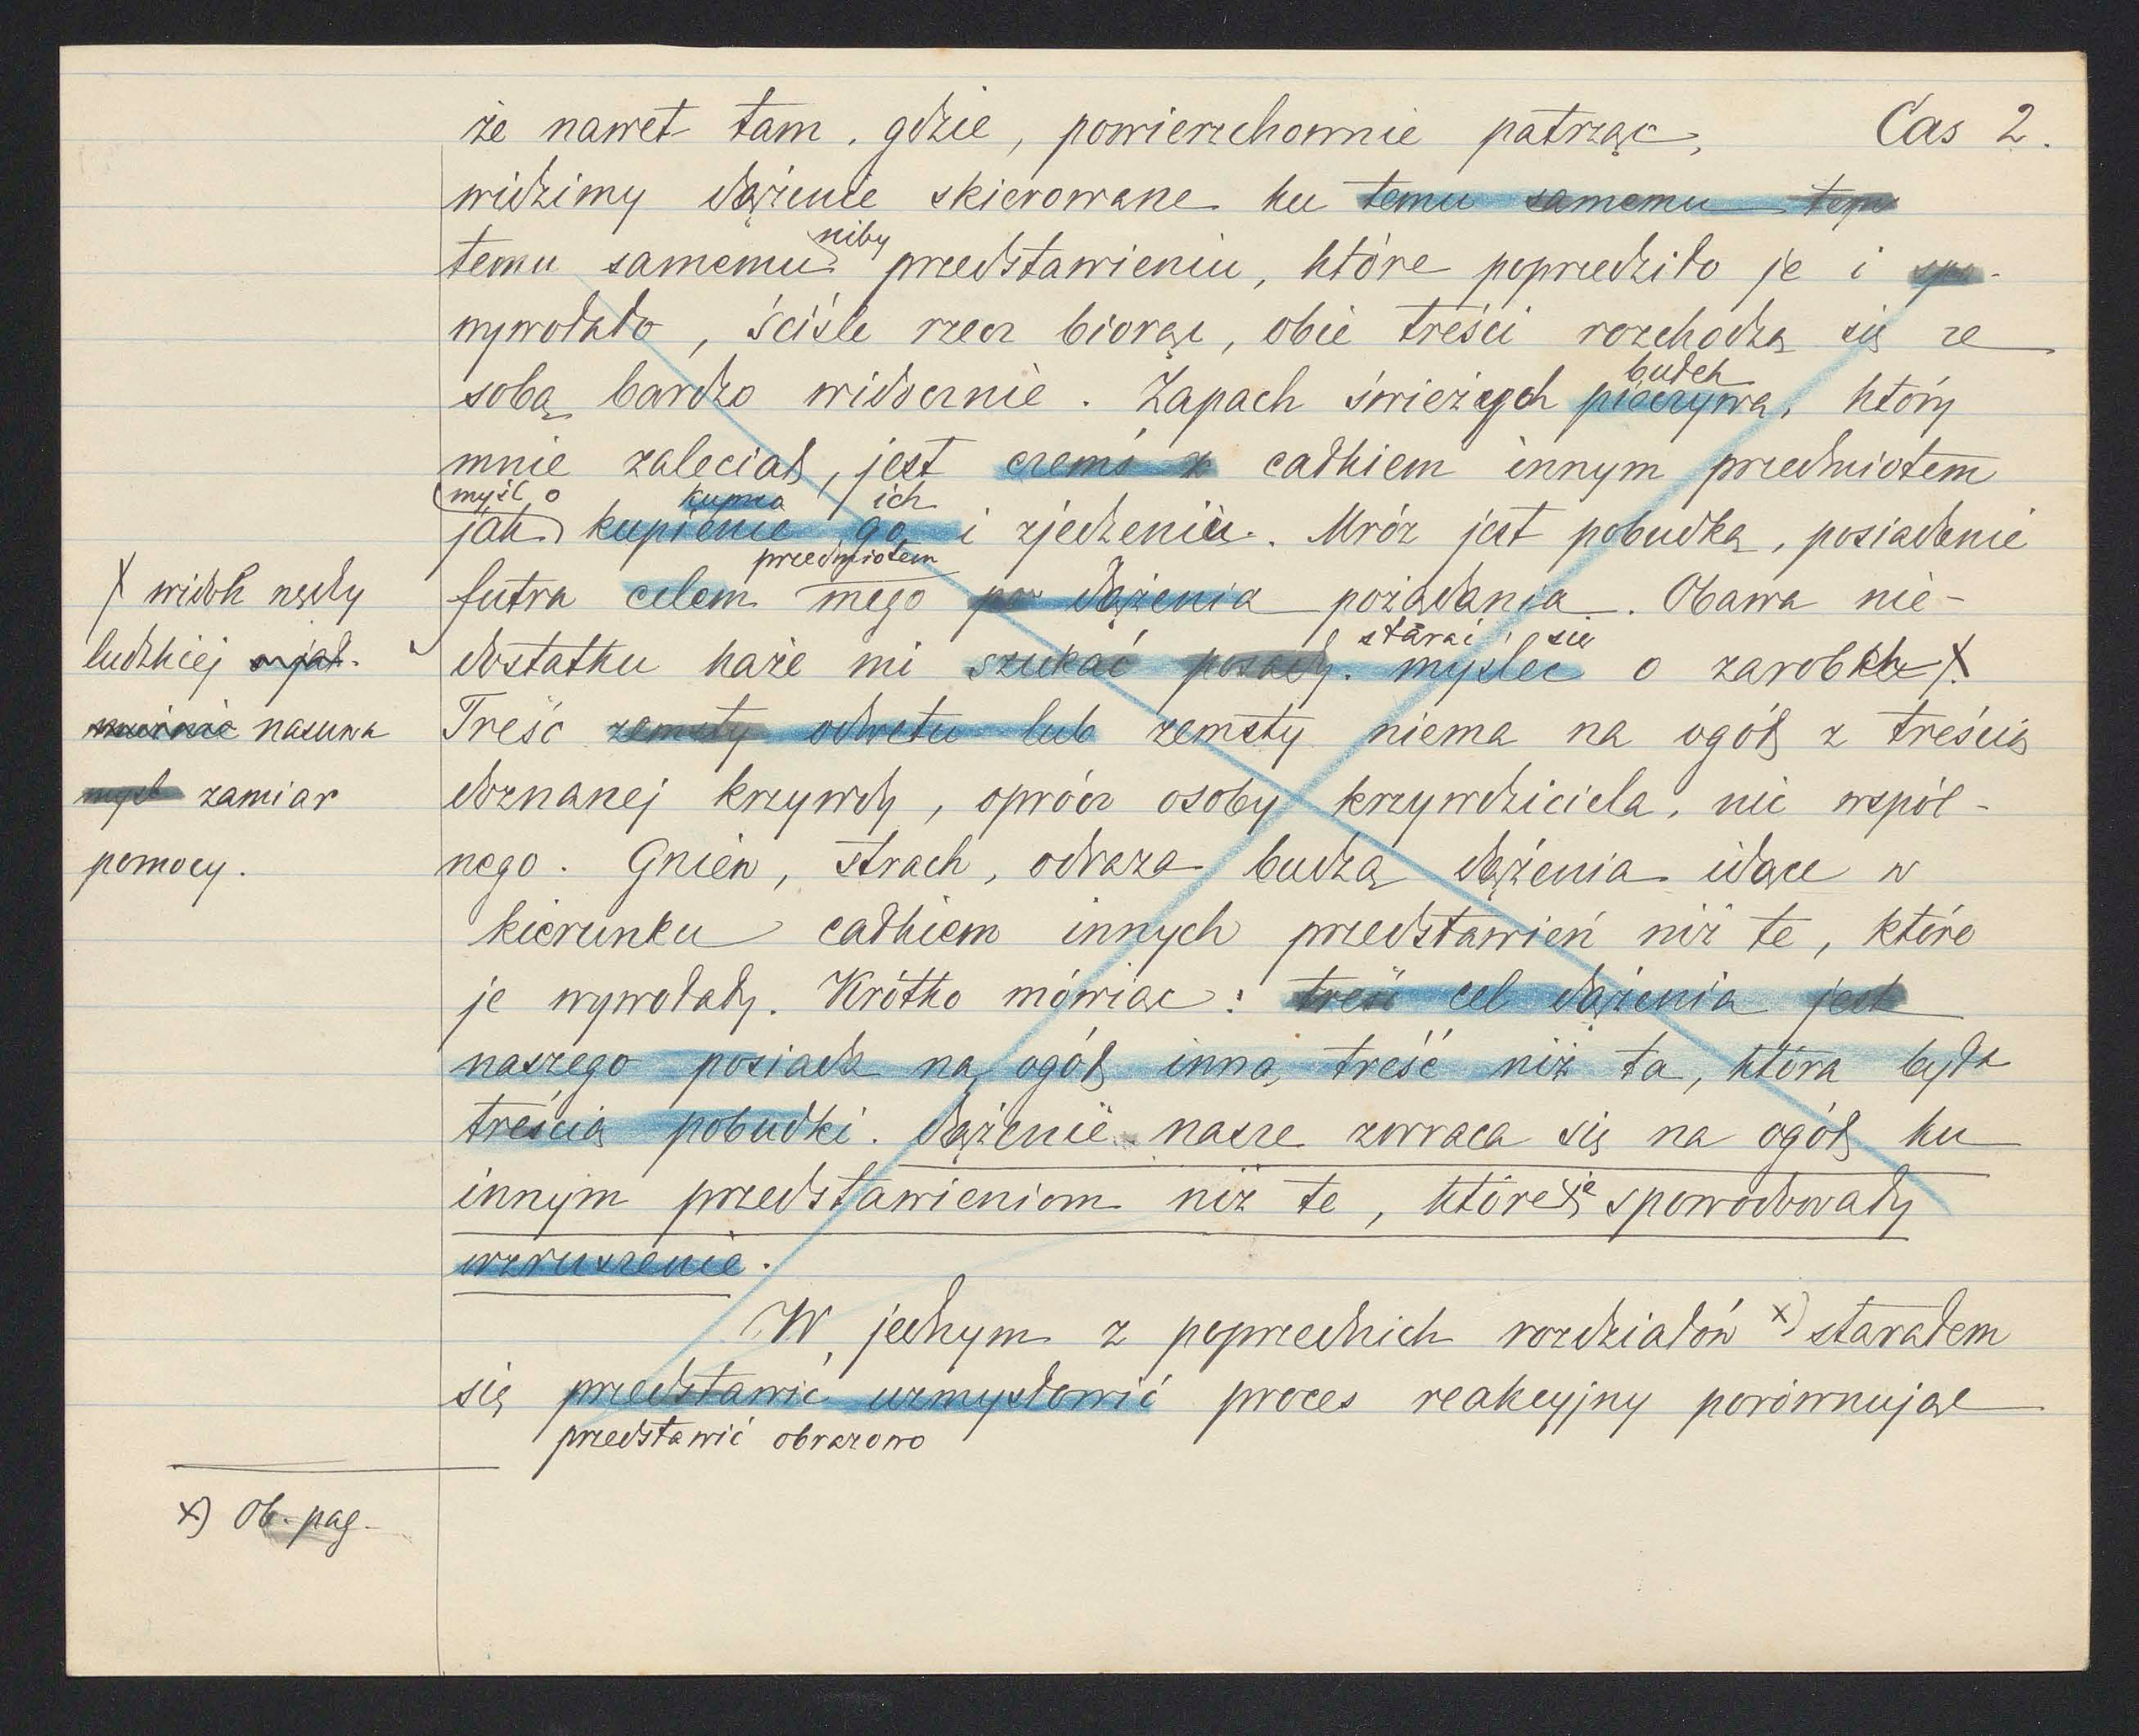 że nawet tam, gdzie, powierzchownie patrząc, Cas 2.
widzimy dążenie skierowane ku temu samemu
niby
temu samemu przedstawieniu, które poprzedziło je i spo-
wywołało, ściśle rzecz biorąc, obie treści rozchodzą się ze
sobą bardzo widocznie. Zapach świeżych pieczywa, który
bułek
mnie zaleciał, jest czemś z całkiem innym przedmiotem
myśl o kupna ich
jak kupienie go i zjedzeniu. Mróz jest pobudką, posiadanie
przedmiotem
futra celem mego dążenia pożądania. Obawa nie-
starać się
dostatku każe mi szukać posady. myśleć o zarobku X.
Treść zemsty odwetu lub zemsty niema na ogół z treścią
doznanej krzywdy, oprócz osoby krzywdziciela, nic wspól-
nego. Gniew, strach, odraza budzą dążenia idące w
kierunku całkiem innych przedstawień niż te, które
je wywołały. Krótko mówiąc: treść cel dążenia jest
naszego posiada na ogół inną treść niż ta, która była
treścią pobudki. Dążenie nasze zwraca się na ogół ku
innym przedstawieniom niż te, które je spowodowały
wzruszenie.
W jednym z poprzednich rozdziałów x) starałem
się przedstawić uzmysłowić proces reakcyjny porównując
przedstawić obrazowo
X widok nędzy
ludzkiej
nasuwa
myśl zamiar
pomocy.
x) Ob. pag.